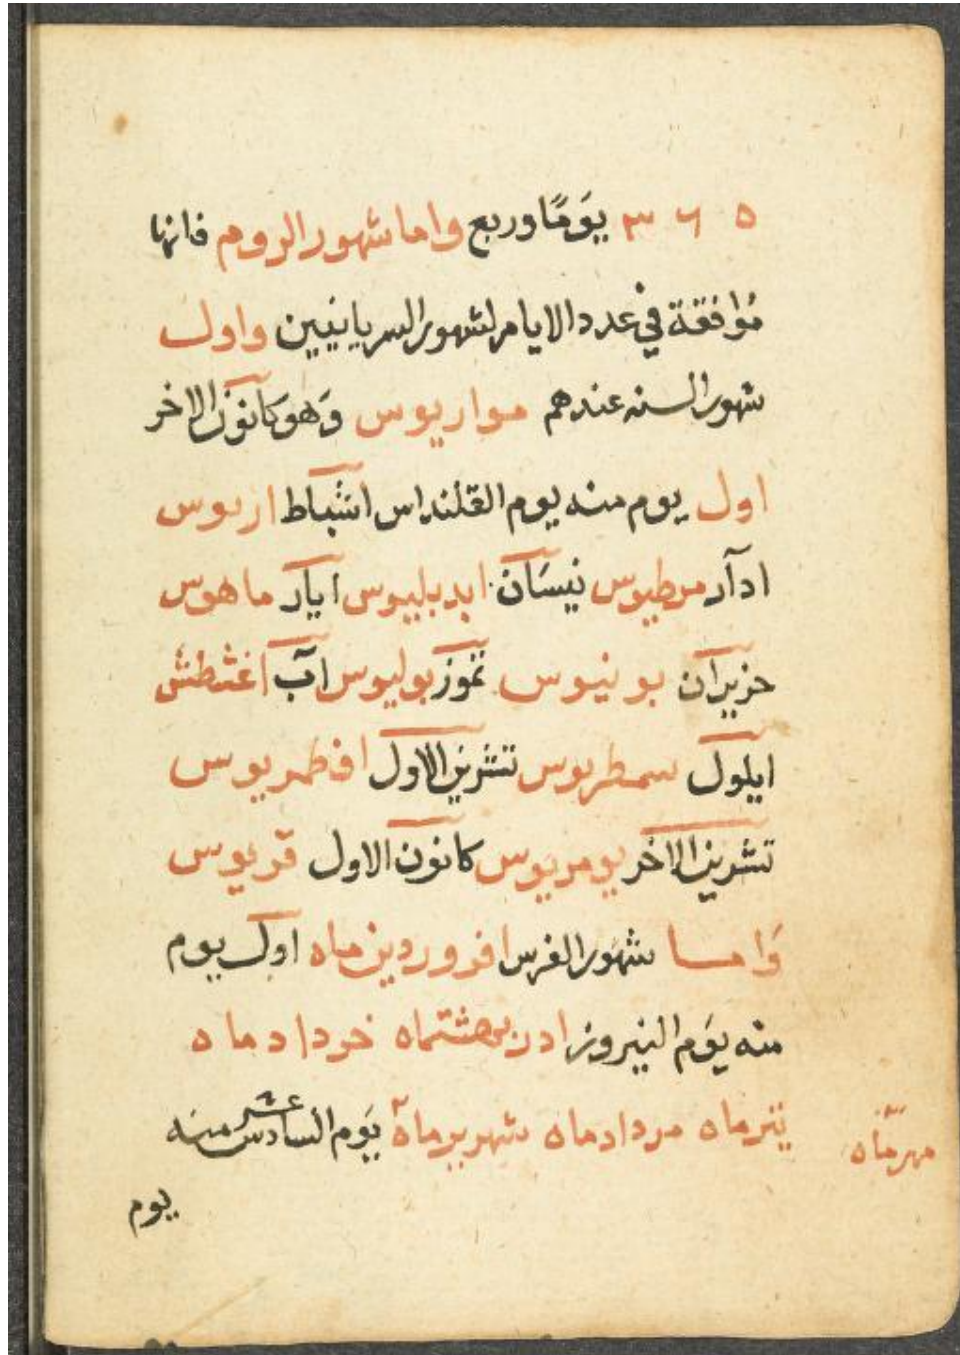 ٣ ٦ ٥ يَومًا وربع واما شهور الروم فانها
مُوافقة في عدد الايام لشهور السريانيين واول
شهور السنه عندهم مواريوس وَهو كانون الاخر
اول يوم منه يوم القلنداس اشباط اربوس
ادآر مرطيوس نيسَان ابدبليوس ايار ماهوس
حزيران بونيوس تموز بوليوس آب اغشطش
ايلول سمطربوس تشرين الاول افطمريوس
تشرين الاخر يومريوس كانون الاول قريوس
وَاما شهور الفرس افروردين ماه اول يوم
منه يَوم النيروز ادربهشتماه خردادماه
تيرماه مردادماه شهريرماه يَوم السادس عشر منه
مهرماه
يوم